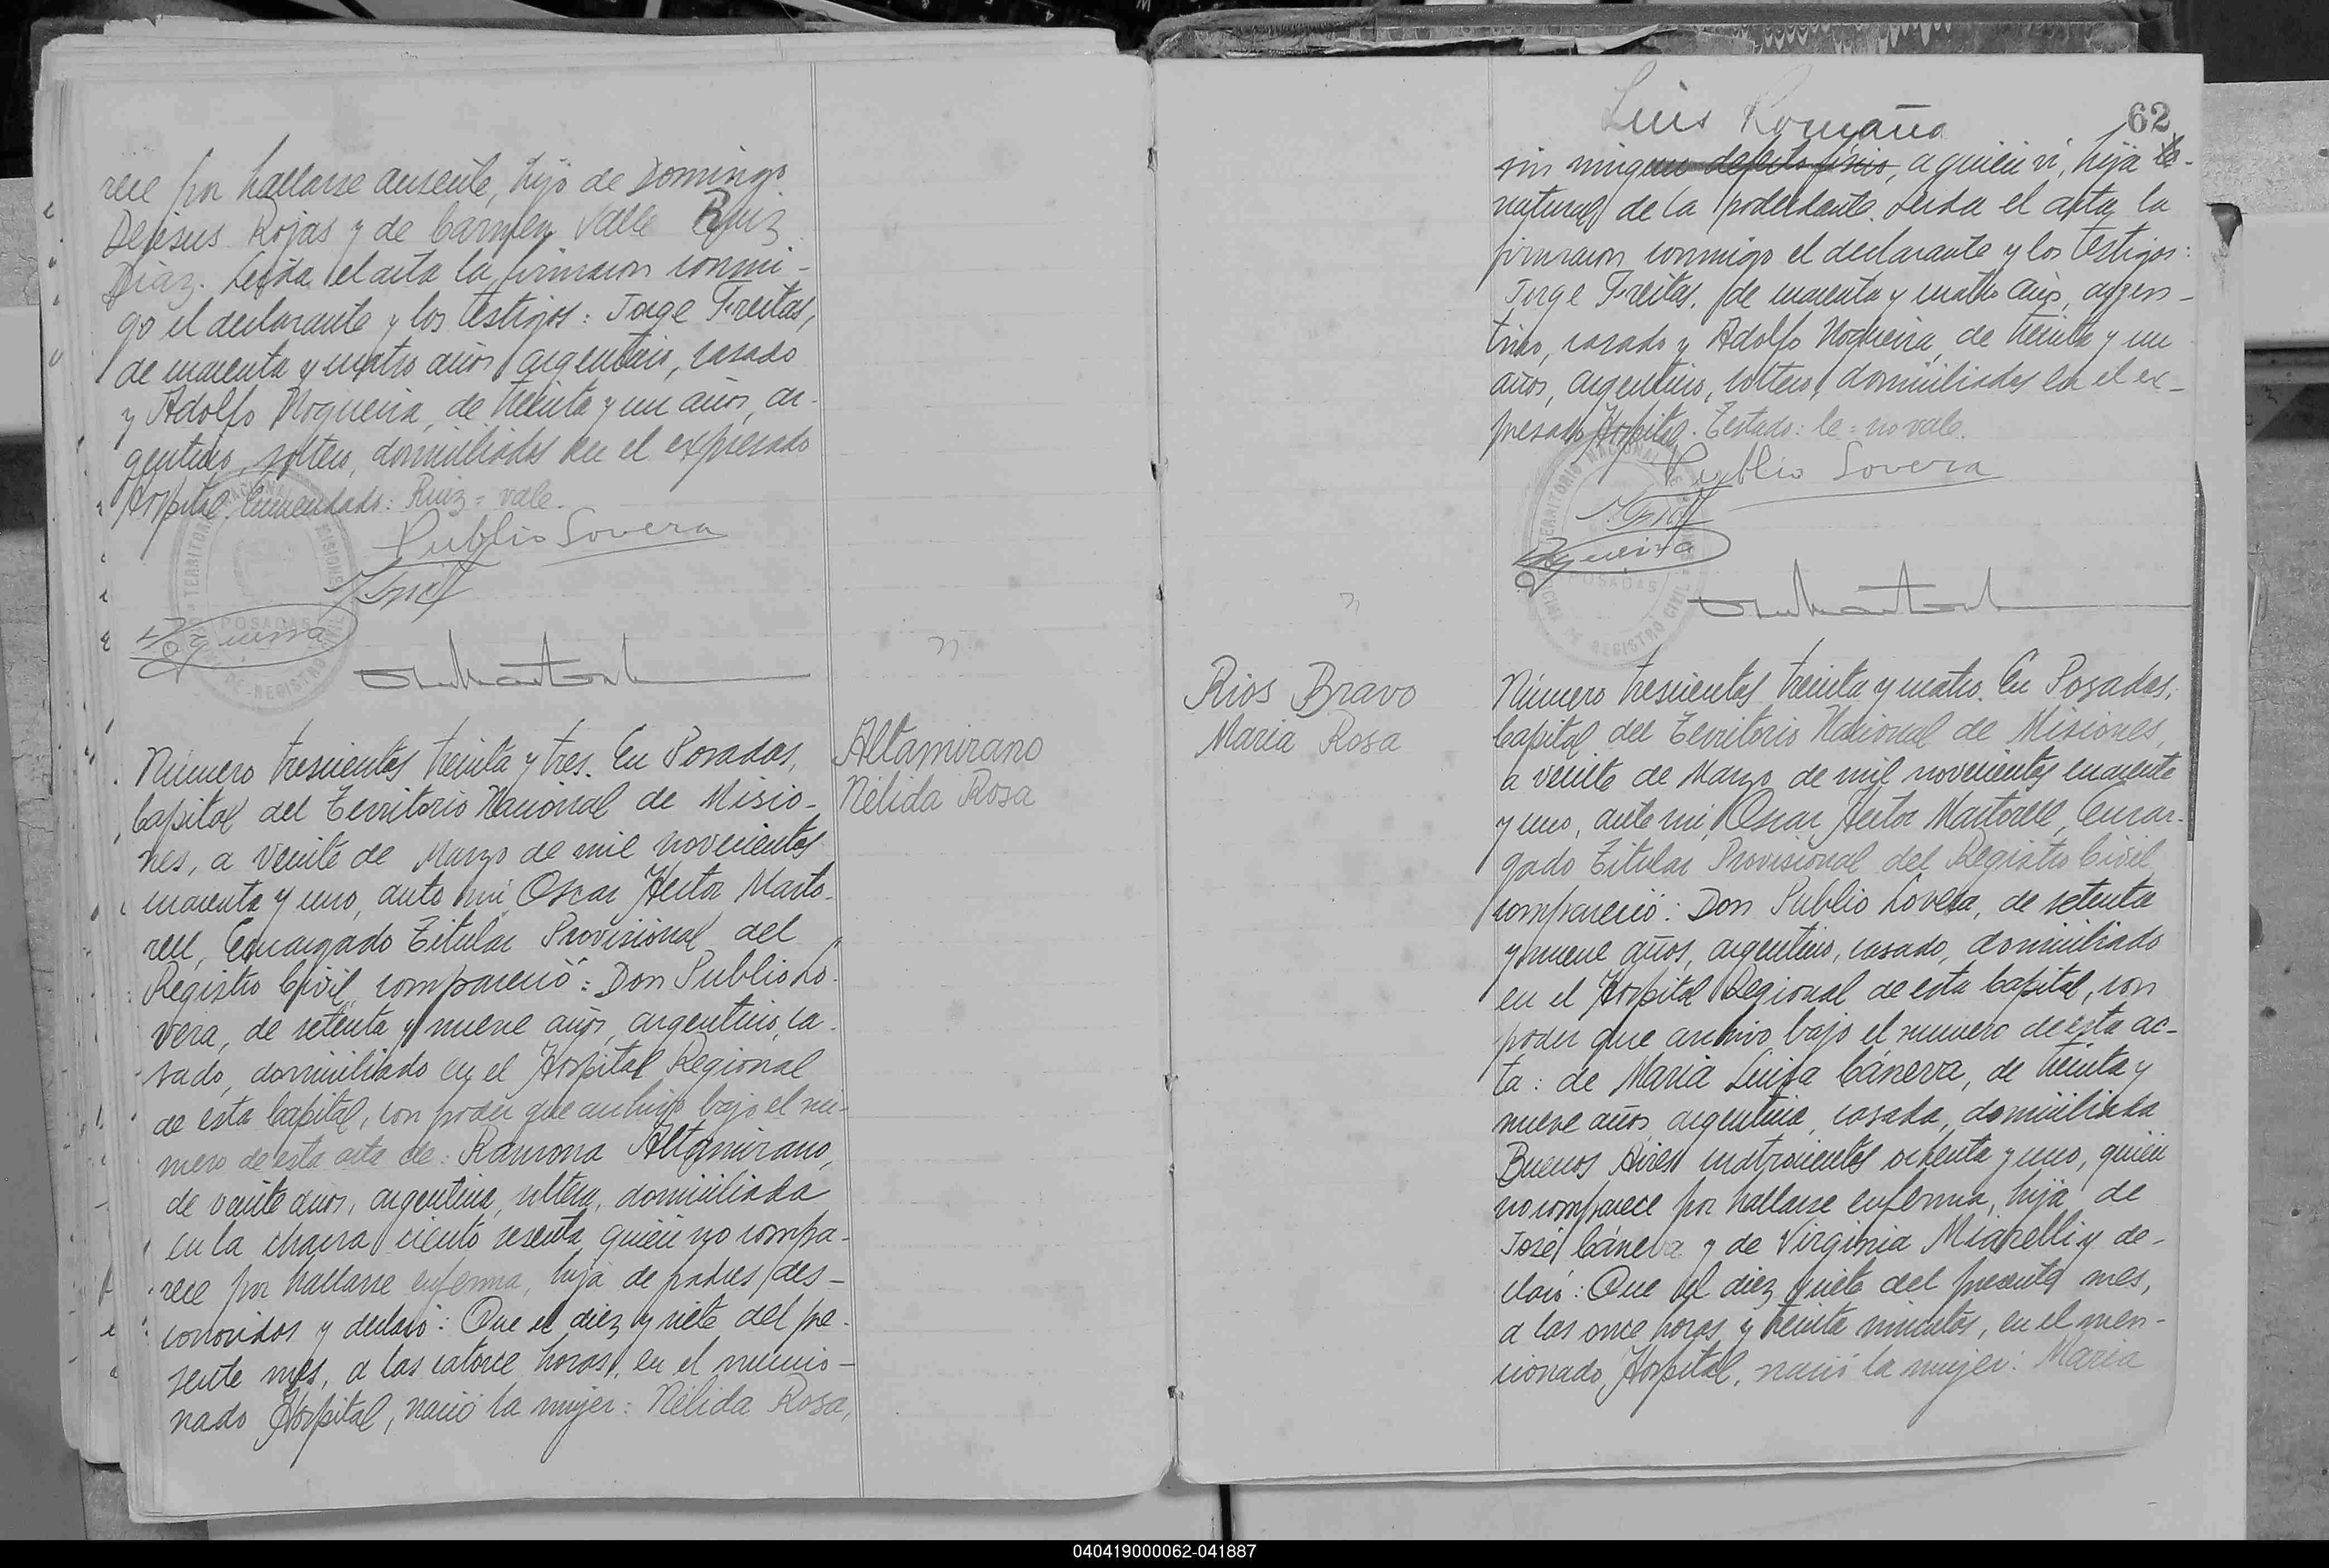 rece por hallarse ausente, hijo de Domingo
Dejesus Rojas y de Carmen Valle Ruiz
Diaz. Leida el acta la firmaron conmi-
go el declarante y los testigos: Jorge Freitas,
de cuarenta y cuatro años, argentino, casado
y Adolfo Nogueira, de treinta y un años, ar-
gentino, soltero, domiciliados en el expresado
Hospital. Enmendado: Ruiz = vale.
Publio Lovera
Nogueira
Número trescientos treinta y tres. En Posadas,
Capital del Territorio Nacional de Misio-
nes, a veinte de Marzo de mil novecientos
cuarenta y uno, ante mi Oscar Hector Marto-
rell, Encargado Titular Provisional del
Registro Civil, compareció: Don Publio Lo-
vera, de setenta y nueve años, argentino, ca-
sado, domiciliado en el Hospital Regional
de esta Capital, con poder que archivo bajo el nú-
mero de esta acta de: Ramona Altamirano,
de veinte años, argentina, soltera, domiciliada
en la chacra ciento sesenta quien no compa-
rece por hallarse enferma, hija de padres des-
conocidos y declaró: Que el diez y siete del pre-
sente mes, a las catorce horas, en el mencio-
nado Hospital, nació la mujer: Nélida Rosa,
Altamirano
Nélida Rosa
Luis Romaña
62
sin ningun defecto fisico, a quien vi, hija le-
natural de la poderdante. Leida el acta la
firmaron conmigo el declarante y los testigos:
Jorge Freitas, de cuarenta y cuatro años, argen-
tino, casado y Adolfo Nogueira, de treinta y un
años, argentino, soltero, domiciliados en el ex-
presado Hospital. Testado: le = no vale.
Publio Lovera
Nogueira
Rios Bravo
Maria Rosa
Número trescientos treinta y cuatro. En Posadas,
Capital del Territorio Nacional de Misiones,
a veinte de Marzo de mil novecientos cuarenta
y uno, ante mi, Oscar Hector Martorell, Encar-
gado Titular Provisional del Registro Civil
compareció: Don Publio Lovera, de setenta
y nueve años, argentino, casado, domiciliado
en el Hospital Regional de esta Capital, con
poder que archivo bajo el numero de esta ac-
ta: de Maria Luisa Cáneva, de treinta y
nueve años, argentina, casada, domiciliada
Buenos Aires cuatrocientos ochenta y uno, quien
no comparece por hallarse enferma, hija de
José Cáneva y de Virginia Miarelli y de-
claró: Que el diez y siete del presente mes,
a las once horas y treinta minutos, en el men-
cionado Hospital, nació la mujer: Maria
040419000062-041887